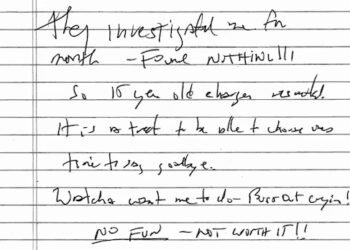 They investigated me for
month - Found NOTHING!!!
So 15 year old charges resulted.
It is a treat to be able to choose ones
time to say goodbye.
Watcha want me to do - Burst out crying!!
NO FUN - NOT WORTH IT!!